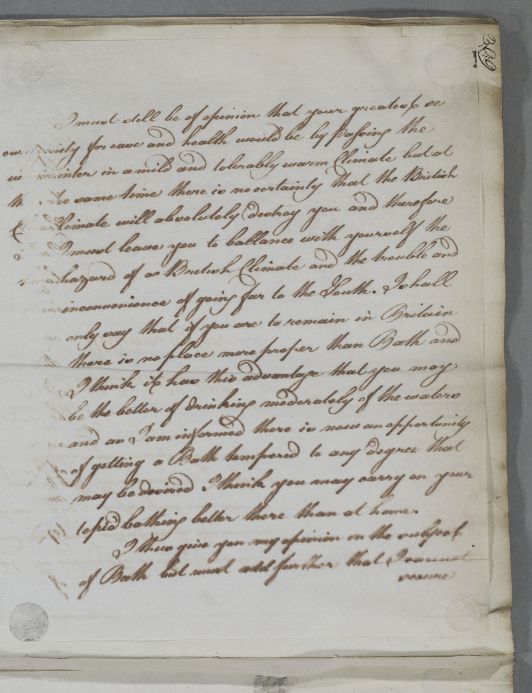 I must still be of opinion that your greatest se
curity for ease and health would be by passing the
winter in a mild and tolerably warm Climate but at
the same time there is no certainty that the British
Climate will absolutely destroy you and therefore
I must leave you to ballance with yourself the
hazard of a British Climate and the trouble and
inconvenience of going far to the South. I shall
only say that if you are to remain in Britain
there is no place more proper than Bath and
I think it has this advantage that you may
be the better of drinking moderately of the waters
and as I am informed there is now an opportunity
of getting a Bath tempered to any degree that
may be desired I think you may carry on your
tepid bathing better there than at home.
I thus give you my opinion on the subject
of Bath but must add further that I cannot
assure